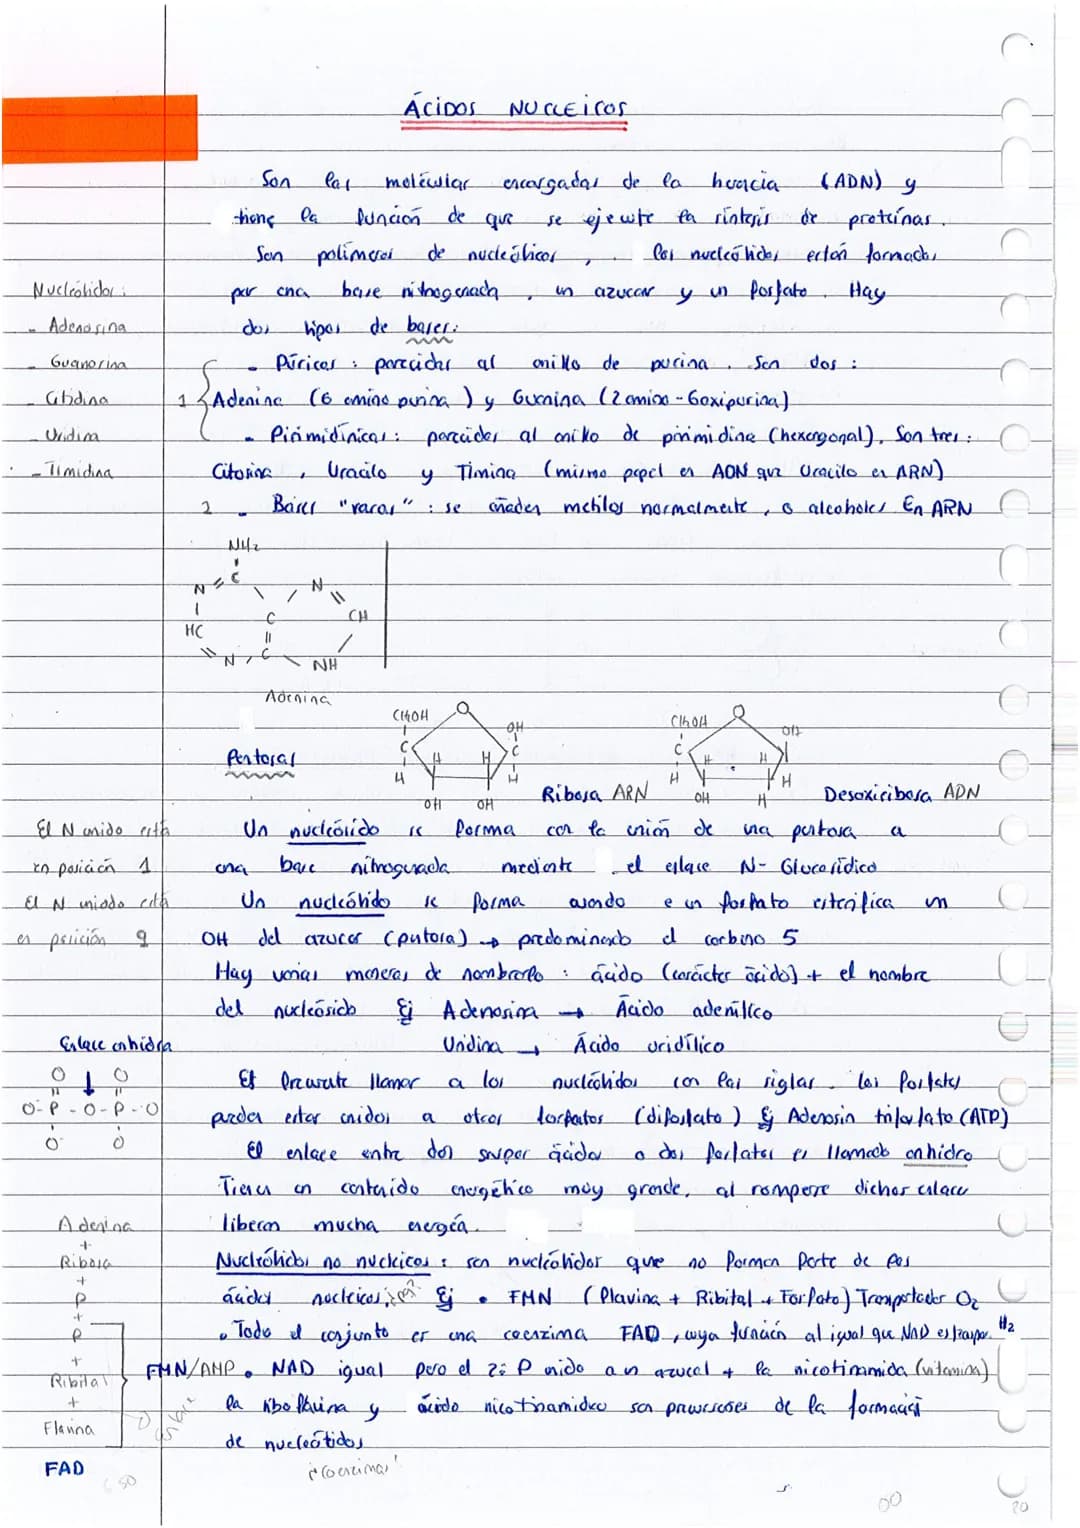 ÁCIDOS NUCLEICOS
Son las moléculas encargadas de la herencia (ADN) y
tiene la función de que se ejecute la síntesis de proteínas.
Son polímeros de nucleótidos, los nucleótidos están formados
por una base nitrogenada, un azucar y un fosfato. Hay
dos tipos de bases:
- Púricas: parecidas al anillo de purina. Son dos:
1 Adenina (6 amino purina) y Guanina (2 amino-6oxipurina)
- Pirimidínicas: parecidas al anillo de pirimidina (hexagonal). Son tres:
Citosina, Uracilo y Timina (mismo papel en ADN que Uracilo en ARN)
2 - Bases "raras": se añaden metilos normalmente, o alcoholes En ARN
Nucleótidos:
- Adenosina
- Guanosina
- Citidina
- Uridina
- Timidina
NH2
C
N
N
HC
C
CH
N
C
NH
Adenina
Pentosas
CH2OH
O
OH
C
C
H
H
H
H
OH
OH
Ribosa ARN
CH2OH
O
OH
C
H
H
H
H
OH
H
Desoxiribosa ADN
El N unido está
en posición 1
El N unido está
en posición 9
Un nucleósido se forma con la unión de una pentosa a
una base nitrogenada mediante el enlace N-Glucosídico
Un nucleótido se forma cuando e un fosfato esterifica un
OH del azucar (pentosa) → predominando el carbono 5
Hay varias maneras de nombrarlo: ácido (carácter ácido) + el nombre
del nucleósido Ej Adenosina → Ácido adenílico
Uridina → Ácido uridílico
Enlace anhidra
O O
O-P-O-P-O
O- O
Es frecuente llamar a los nucleótidos con las siglas. Los fosfatos
pueden estar unidos a otros fosfatos (difosfato) Ej Adenosin trifosfato (ATP)
El enlace entre dos super ácidos o dos fosfatos es llamado anhidro
Tienen un contenido energético muy grande, al romperse dichos enlace
liberan mucha energía.
Nucleótidos no nucleicos: son nucleótidos que no forman parte de los
ácidos nucleicos. Ej • FMN (Flavina + Ribital + Fosfato) Transportador O2
• Todo el conjunto es una coenzima FAD, cuya función al igual que NAD es transpor. H2
FMN/AMP • NAD igual pero el 2º P unido a un azucal + la nicotinamida (vitamina)
la riboflavina y ácido nicotinamidico son precursores de la formación
de nucleótidos
¿coenzimas?
Adenina
+
Ribosa
+
P
+
P
+
Ribital
+
Flavina
FAD
20